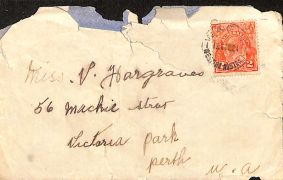 Miss V. Hargraves
56 Mackie Street
Victoria Park
Perth
W.A